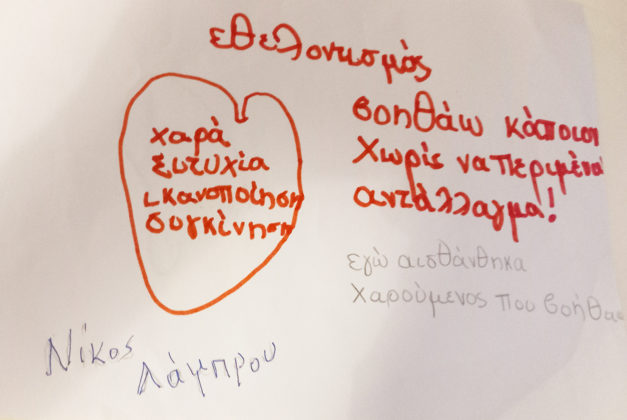 εθελοντισμός
χαρά
ευτυχία
ικανοποίηση
συγκίνηση
βοηθάω κάποιον
Χωρίς να περιμένω
αντάλλαγμα!
εγώ αισθάνθηκα
χαρούμενος που βοήθαω
Νίκος
Λάμπρου